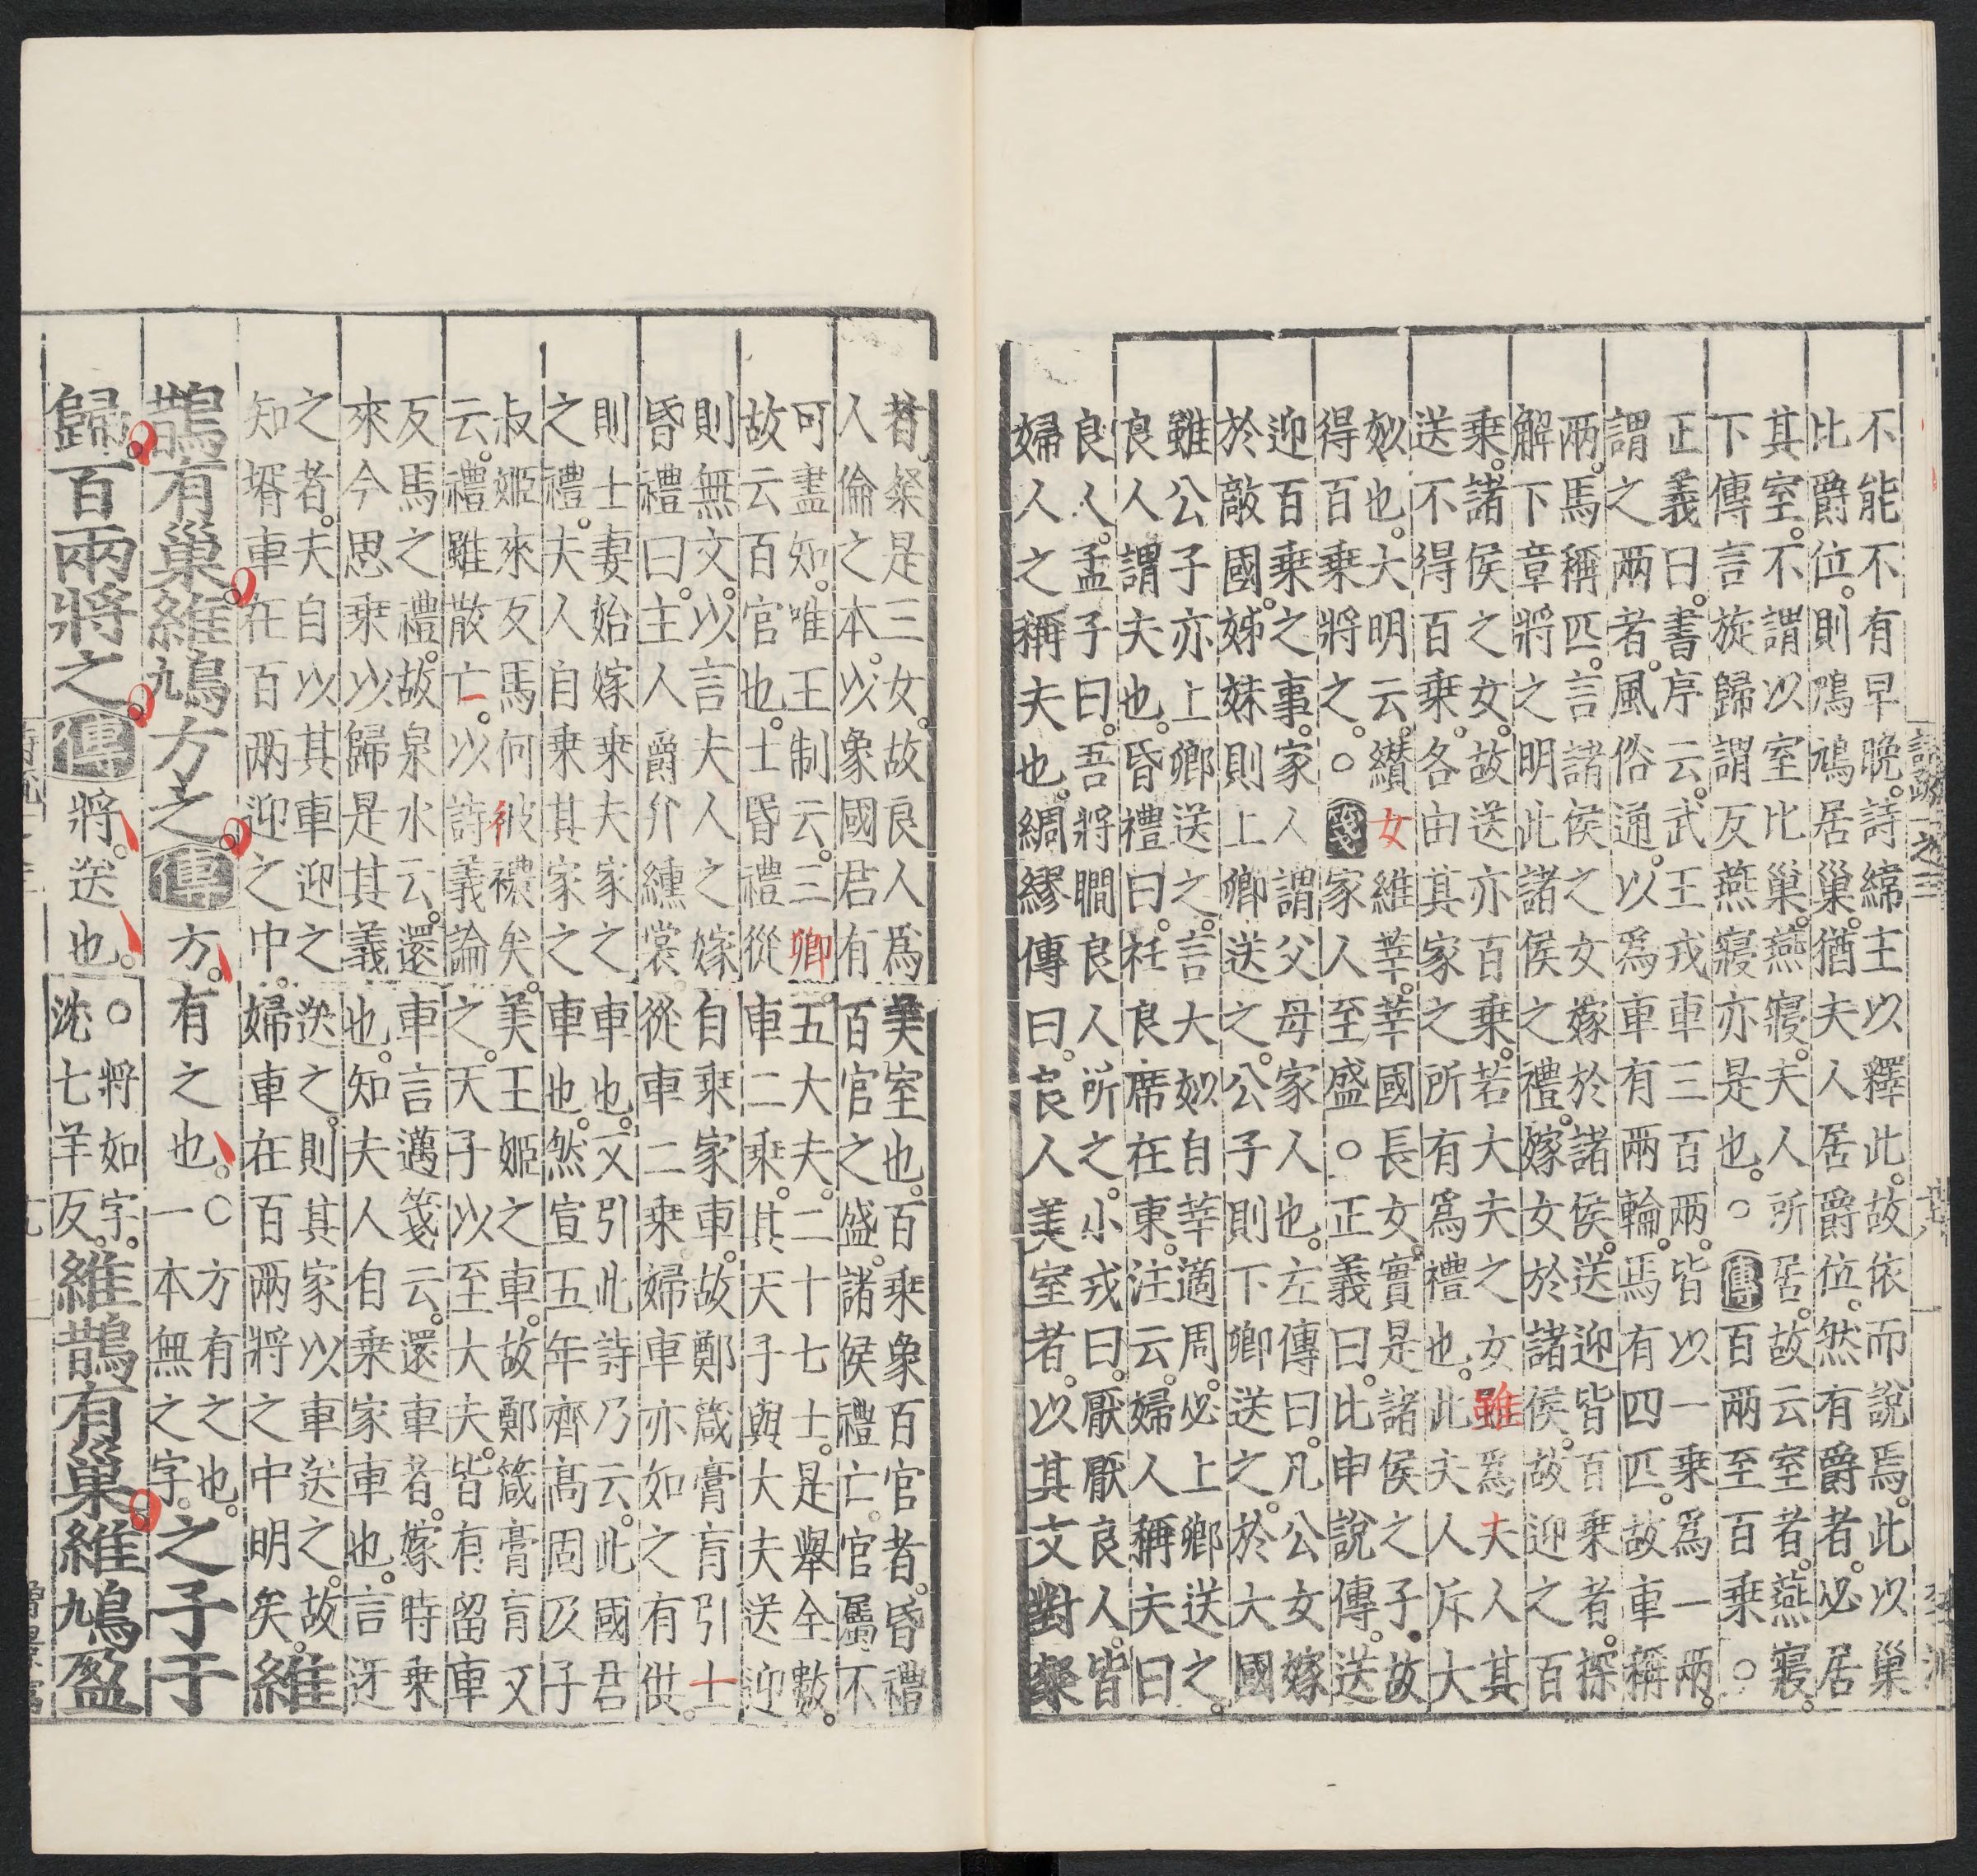 不能不有早晚詩緯主以釋此故依而說焉此以巢
比爵位則鳲鳩居巢猶夫人居爵位然有爵者必居
其室不謂以室比巢燕寢夫人所居故云室者燕寢
下傳言旋歸謂反燕寢亦是也○傳百兩至百乘○
正義曰書序云武王戎車三百兩皆以一乘爲一兩
謂之兩者風俗通以爲車有兩輪焉有四匹故車稱
兩馬稱匹言諸侯之女嫁於諸侯送迎皆百乘者探
解下章將之明此諸侯之禮嫁女於諸侯故迎之百
乘諸侯之女故送亦百乘若大夫之女雖爲夫人其
送不得百乘各由其家之所有爲禮也此夫人斥大
姒也大明云纘女維莘莘國長女實是諸侯之子故
得百乘將之○箋家人至盛○正義曰比申說傳送
迎百乘之事家人謂父母家人也左傳曰凡公女嫁
於敵國姊妹則上卿送之公子則下卿送之於大國
雖公子亦上卿送之言大姒自莘適周必上卿送之
良人謂夫也昏禮曰衽良席在東注云婦人稱夫曰
良人孟子曰吾將瞷良人所之小戎曰厭厭良人皆
婦人之稱夫也綢繆傳曰良人美室者以其文對粲
者粲是三女故良人爲美室也百乘象百官者昏禮
人倫之本以象國君有百官之盛諸侯禮亡官屬不
可盡知唯王制云三卿五大夫二十七士是舉全數
故云百官也士昏禮從車二乘其天子與大夫送迎
則無文以言夫人之嫁自乘家車故鄭箴膏肓引士
昏禮曰主人爵弁纁裳從車二乘婦車亦如之有供
則士妻始嫁乘夫家之車也又引此詩乃云此國君
之禮夫人自乘其家之車也然宣五年齊高固及子
叔姬來反馬何彼襛矣美王姬之車故鄭箴膏肓又
云禮雖散亡以詩義論之天子以至大夫皆有留車
反馬之禮故泉水云還車言邁箋云還車者嫁時乘
來今思乘以歸是其義也知夫人自乘家車也言迓
之者夫自以其車迎之送之則其家以車送之故
知壻車在百兩迎之中婦車在百兩將之中明矣維
鵲有巢維鳩方之傳方有之也○方有之也一本無之字之子于
歸百兩將之傳將送也○將如字沈七羊反維鵲有巢維鳩盈